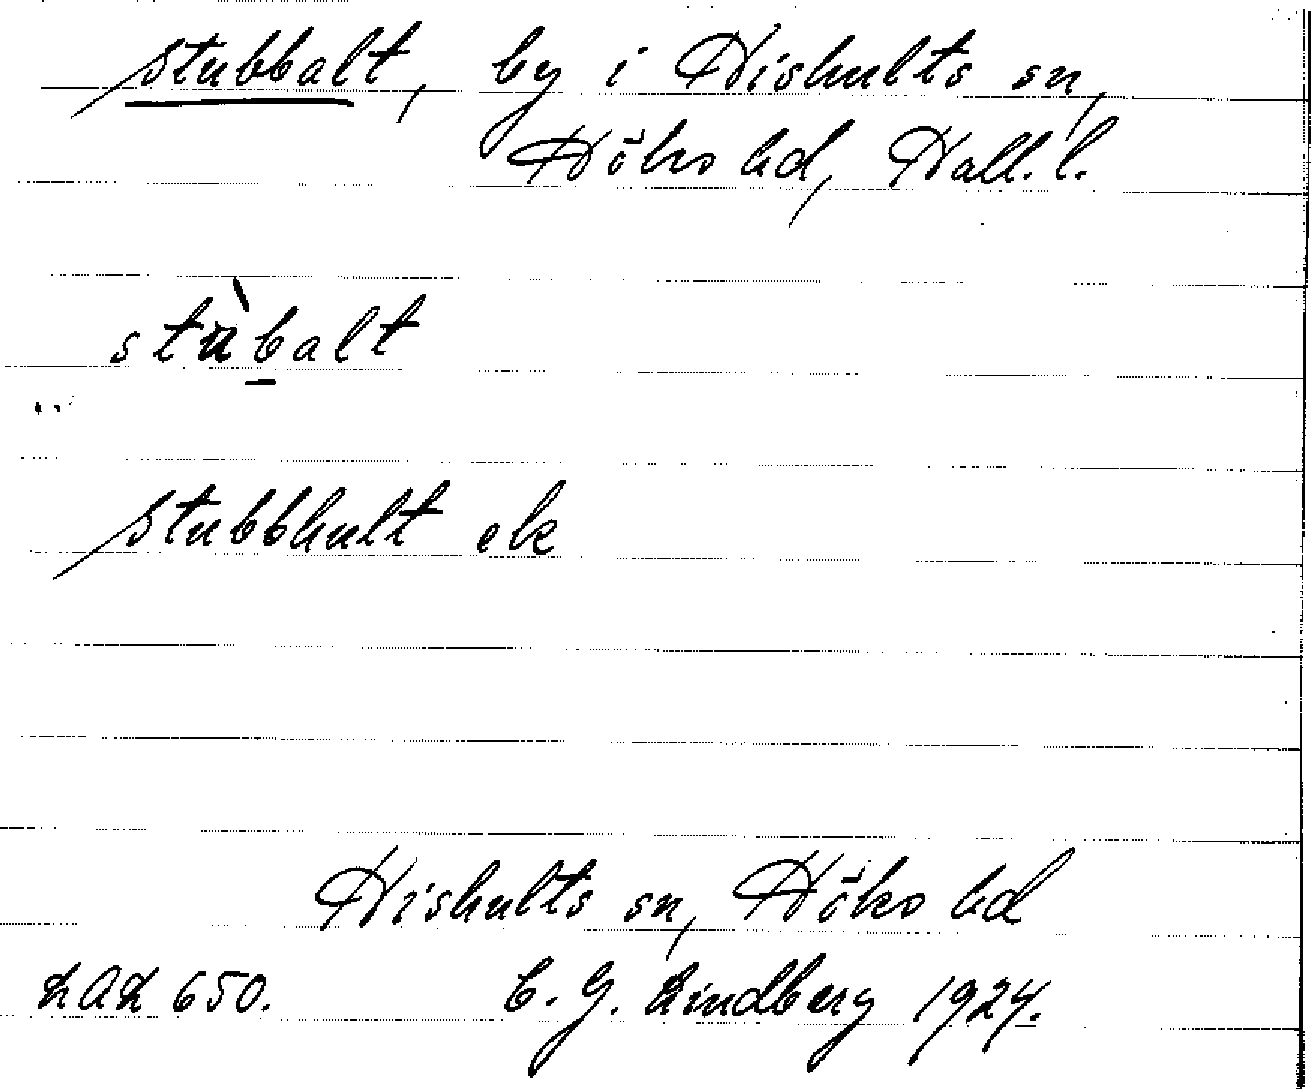 Stubbalt, by i Hishults sn,
Höks hd, Hall. l.
stùb̲alt
Stubbhult ek
Hishults sn, Höks hd
LAL 650. C. G. Lindberg 1924.